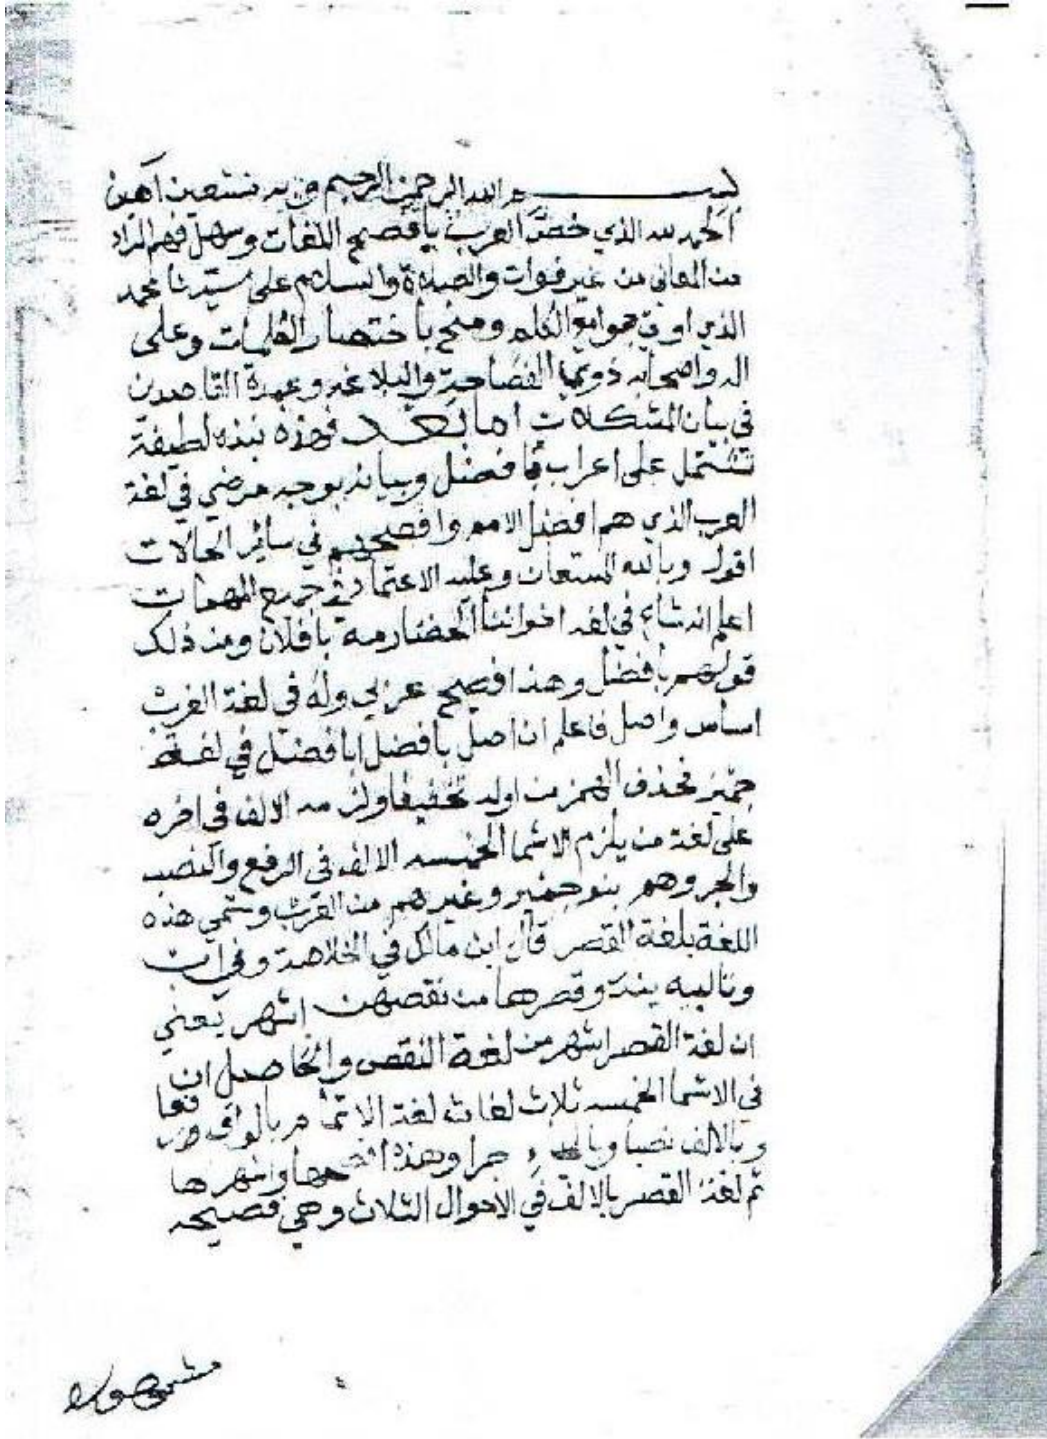 بسم الله الرحمن الرحيم وبه نستعين آمين
الحمد لله الذي خصَّ العرب بافصح اللغات وسهل فهم المراد
من المعاني من غير فوات والصلاة والسلام على سيدنا محمد
الذي اوتي جوامع الكلم ومنح باختصار الكلمات وعلى
اله واصحابه ذوي الفصاحة والبلاغه وعمدة القاصدين
في بيان المشكلات اما بعد فهذه نبذه لطيفة
تشتمل على اعراب بافضل وبيانه بوجه مرضي في لغة
العرب الذي هم افضل الامم وافصحهم في سائر الحالات
اقول وبالله المستعان وعليه الاعتماد في جميع المهمات
اعلم انه شاع في لغه اخواننا الحضارمه بافلان ومن ذلك
قولهم بافضل وهذا فصيح عربي وله في لغة العرب
اساس واصل فاعلم ان اصل بافضل ابا فضل في لغة
حمير فحذف الهمز من اوله تخفيفا ولزمه الالف في اخره
على لغة من يلزم الاسما الخمسه الالف في الرفع والنصب
والجر وهم بنو حمير وغيرهم من العرب وتسمى هذه
اللغة بلغة القصر قال ابن مالك في الخلاصة وفي اب
وتالييه يندر وقصرها من نقصهن اشهر يعني
ان لغة القصر اشهر من لغة النقص والحاصل ان
في الاسما الخمسه ثلاث لغات لغة الاتمام بالواو رفعا
وبالالف نصبا وبالياء جرا وهذه افصحها واشهرها
ثم لغة القصر بالالف في الاحوال الثلاث وهي فصيحه
مشهوره